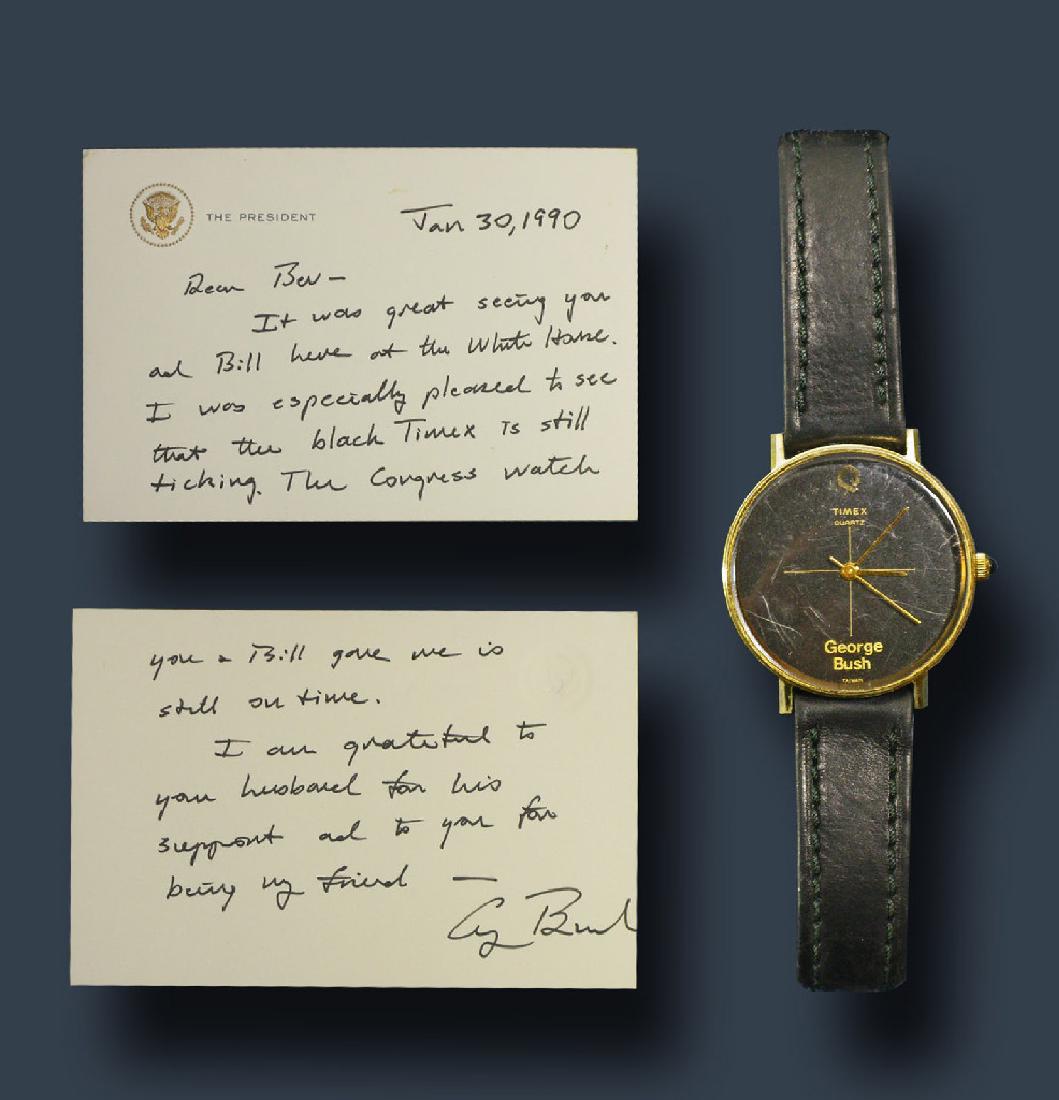 THE PRESIDENT
Jan 30, 1990
Dear Bev —
It was great seeing you
and Bill here at the White House.
I was especially pleased to see
that the black Timex is still
ticking. The Congress watch
you & Bill gave me is
still on time.
I am grateful to
your husband for his
support and to you for
being my friend —
G Bush
TIMEX
QUARTZ
George
Bush
TAIWAN